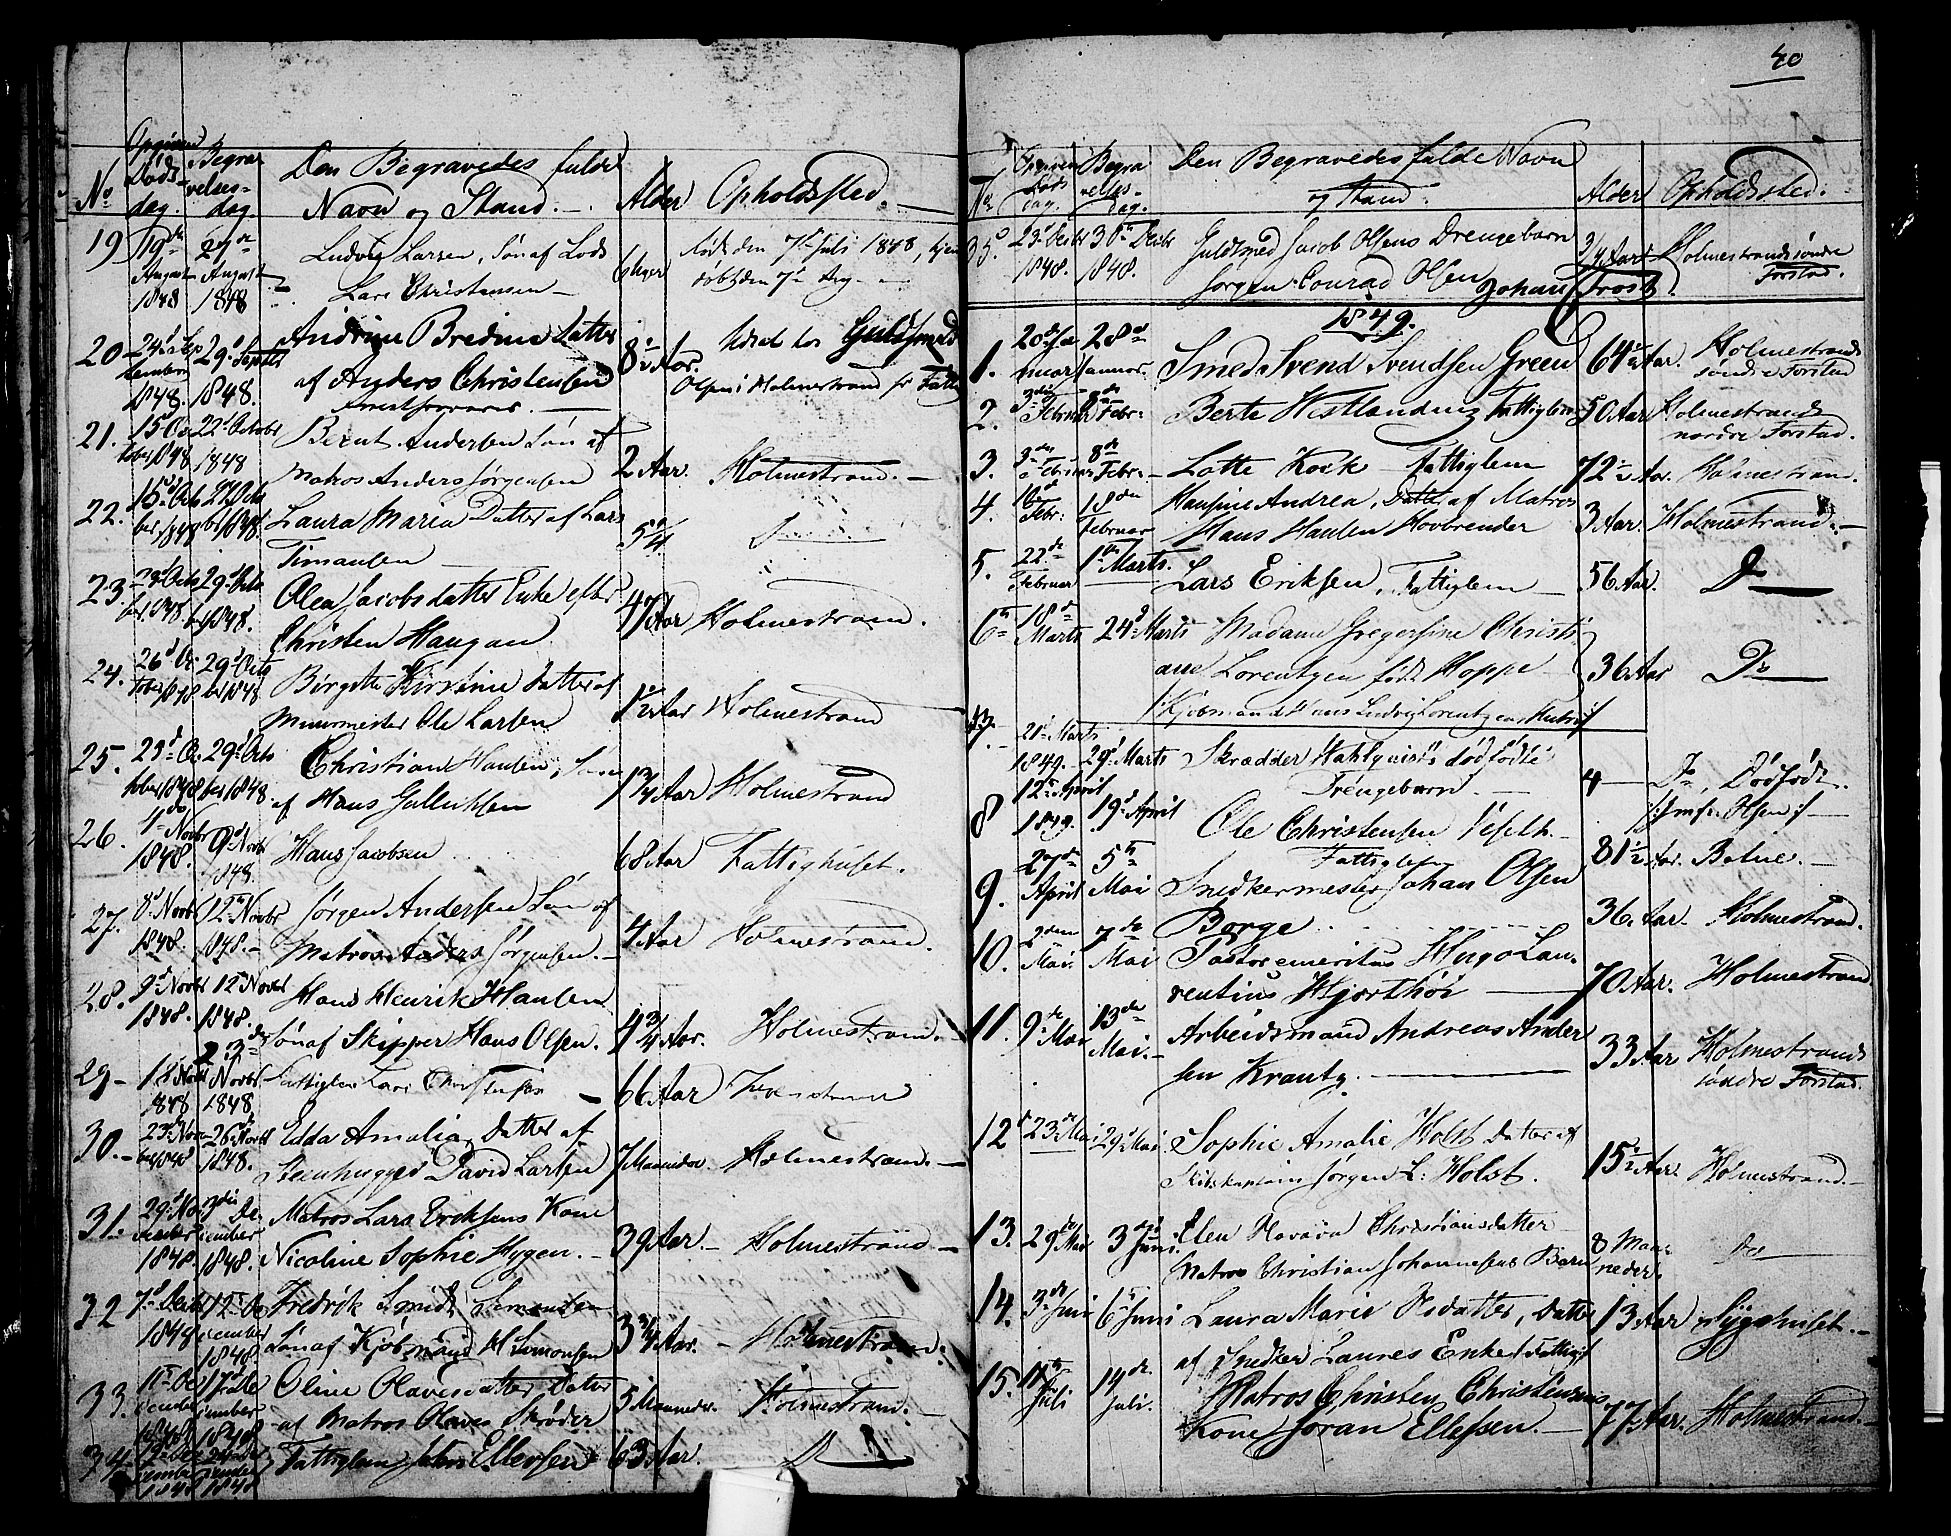 40
No
Opgiven Døds-dag.
Begravelses-dag.
Den Begravedes fulde
Navn og Stand.
Alder
Opholdssted.
19
19de August 1848
27de August 1848
Ludvig Larsen, Søn af Lods
Lars Christensen
6 Uger
født den 7de Juli 1848, hjem
døbt den 7de Aug.
20
24d September 1848.
29d Septbr 1848.
Andrine Bredine Datter
af Anders Christensen
8½ Aar.
Guldsmed
Olsen i Holmestrand
21.
15 October 1848
22d Octobr 1848
Bernt Andersen Søn af
Matros Anders Jørgensen
2 Aar.
Holmestrand.
22.
15d October 1848
22d Octbr 1848.
Laura Maria Datter af Lars
Timansen
23.
23d October 1848
29d October 1848.
Olea Jacobsdatter Enke efter
Christen Haugan
47 Aar
Holmestrand.
24.
26d October 1848
29d October 1848
Birgitte Kirstine Datter af
Muurmester Ole Larsen
1½ Aar
Holmestrand
25.
25d October 1848
29d October 1848
Christian Hansen, Søn
af Hans Gulliksen
1¾ Aar
Holmestrand
26.
4de Novbr 1848.
9d Novbr 1848.
Hans Jacobsen
68 Aar
Fattighuset.
27.
8d Novbr 1848.
12te Novbr 1848.
Jørgen Andersen Søn af
Matros Anders Jørgensen.
4 Aar
Holmestrand.
28.
9d Novbr 1848.
12te Novbr 1848.
Hans Henrik Hansen
Søn af Skipper Hans Olsen.
4¾ Aar.
Holmestrand.
29
18 Novbr 1848
23de Novbr 1848.
Fattiglem Lars
66 Aar
30.
23d November 1848
26d Novbr 1848.
Edda Amalia Datter af
Steenhugger David Larsen
7 Maaneder.
Holmestrand.
31.
29d November 1848.
3die December 1848.
Matros Lars Eriksens Kone
Nicoline Sophie Hygen.
39 Aar.
Holmestrand
32
7d Decbr 1848
12te December 1848.
Fredrik Smidt Simonsen
Søn af Kjøbmand H Simonsen
3¾ Aar.
Holmestrand.
33.
11te December 1848
17de December 1848
Oline Olavesdatter Datter
af Matros Olaves Skrøder
5 Maaneder.
Holmestrand.
34.
19de December 1848
December 1848
Fattiglem Ellevsen
63 Aar.
Do
No
Opgiven Dødsdag.
Begravelsesdag.
Den Begravedes fulde Navn
og Stand.
Alder
Opholdssted.
35
23d Decbr 1848.
30te Decbr 1848.
Guldsmed Jacob Olsens Drengebarn
Jørgen Conrad Olsen
¾ Aar
Holmestrands søndre
Forstad.
Johan Frost
1849.
1.
20de Januar
28de Januar.
Smed Svend Svendsen Green
64½ Aar.
Holmestrands
søndre Forstad
2.
3die Februar
8de Febr.
Berte Westlanding Fattiglem
50 Aar
Holmestrands
nordre Forstad.
3.
3die Februar
8de Febr.
Lotte Kock Fattiglem
72½ Aar.
Holmestrand.
4.
16de Febr:
18den Februar
Hansine Andrea, Datter af Matros
Hans Hansen Hovbrender
3 Aar.
Holmestrand.
5.
22de Februar
1ste Marts.
Lars Eriksen, Fattiglem
56 Aar.
Do
6te
18d Marts
24d Marts
Madame Gregersine Christi
ane Lorentzen født Hoppe
36 Aar
Do
7.
21d Marts 1849.
29d Marts
Skrædder Wahlqvists dødfødte
Drengebarn.
Do, Dødfødt.
8
12te April 1849.
19d April
Ole Christensen
Fattiglem
81½ Aar.
Botne.
9.
27de April
5te Mai
Snedkermester Johan Olsen
Borge
36 Aar.
Holmestrand.
10.
2den Mai.
7de Mai
Pastor emeritus Hugo Lau
rentius Hjorthøi
70 Aar.
Holmestrand
11.
9de Mai
13de Mai.
Arbeidsmand Andreas Ander
sen Krantz.
33 Aar
Holmestrands
søndre Forstad.
12
23de Mai
29d Mai
Sophie Amalie Holst Datter af
Skibskaptein Jørgen L. Holst.
15½ Aar.
Holmestrand.
13.
29de Mai
3die Juni.
Elen Christiansdatter
Matros Christian Johannesens Barn
8 Maa
neder.
do
14.
3die Juni
6te Juni
Laura Marie Olsdatter, Datter
af Snedker Laures Enke
13 Aar
Sygehuset.
15.
11te Juli
14de Juli.
Matros Christen Christensens
Kone Joran Ellefsen.
77 Aar.
Holmestrand.